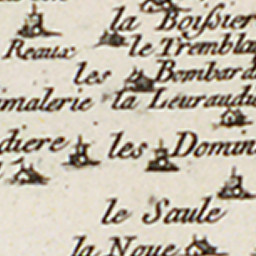 la Boißier
Reaux le Trembla
les Bombard
malerie la Leuraudi
diere les Domin
le Saule
la Noue